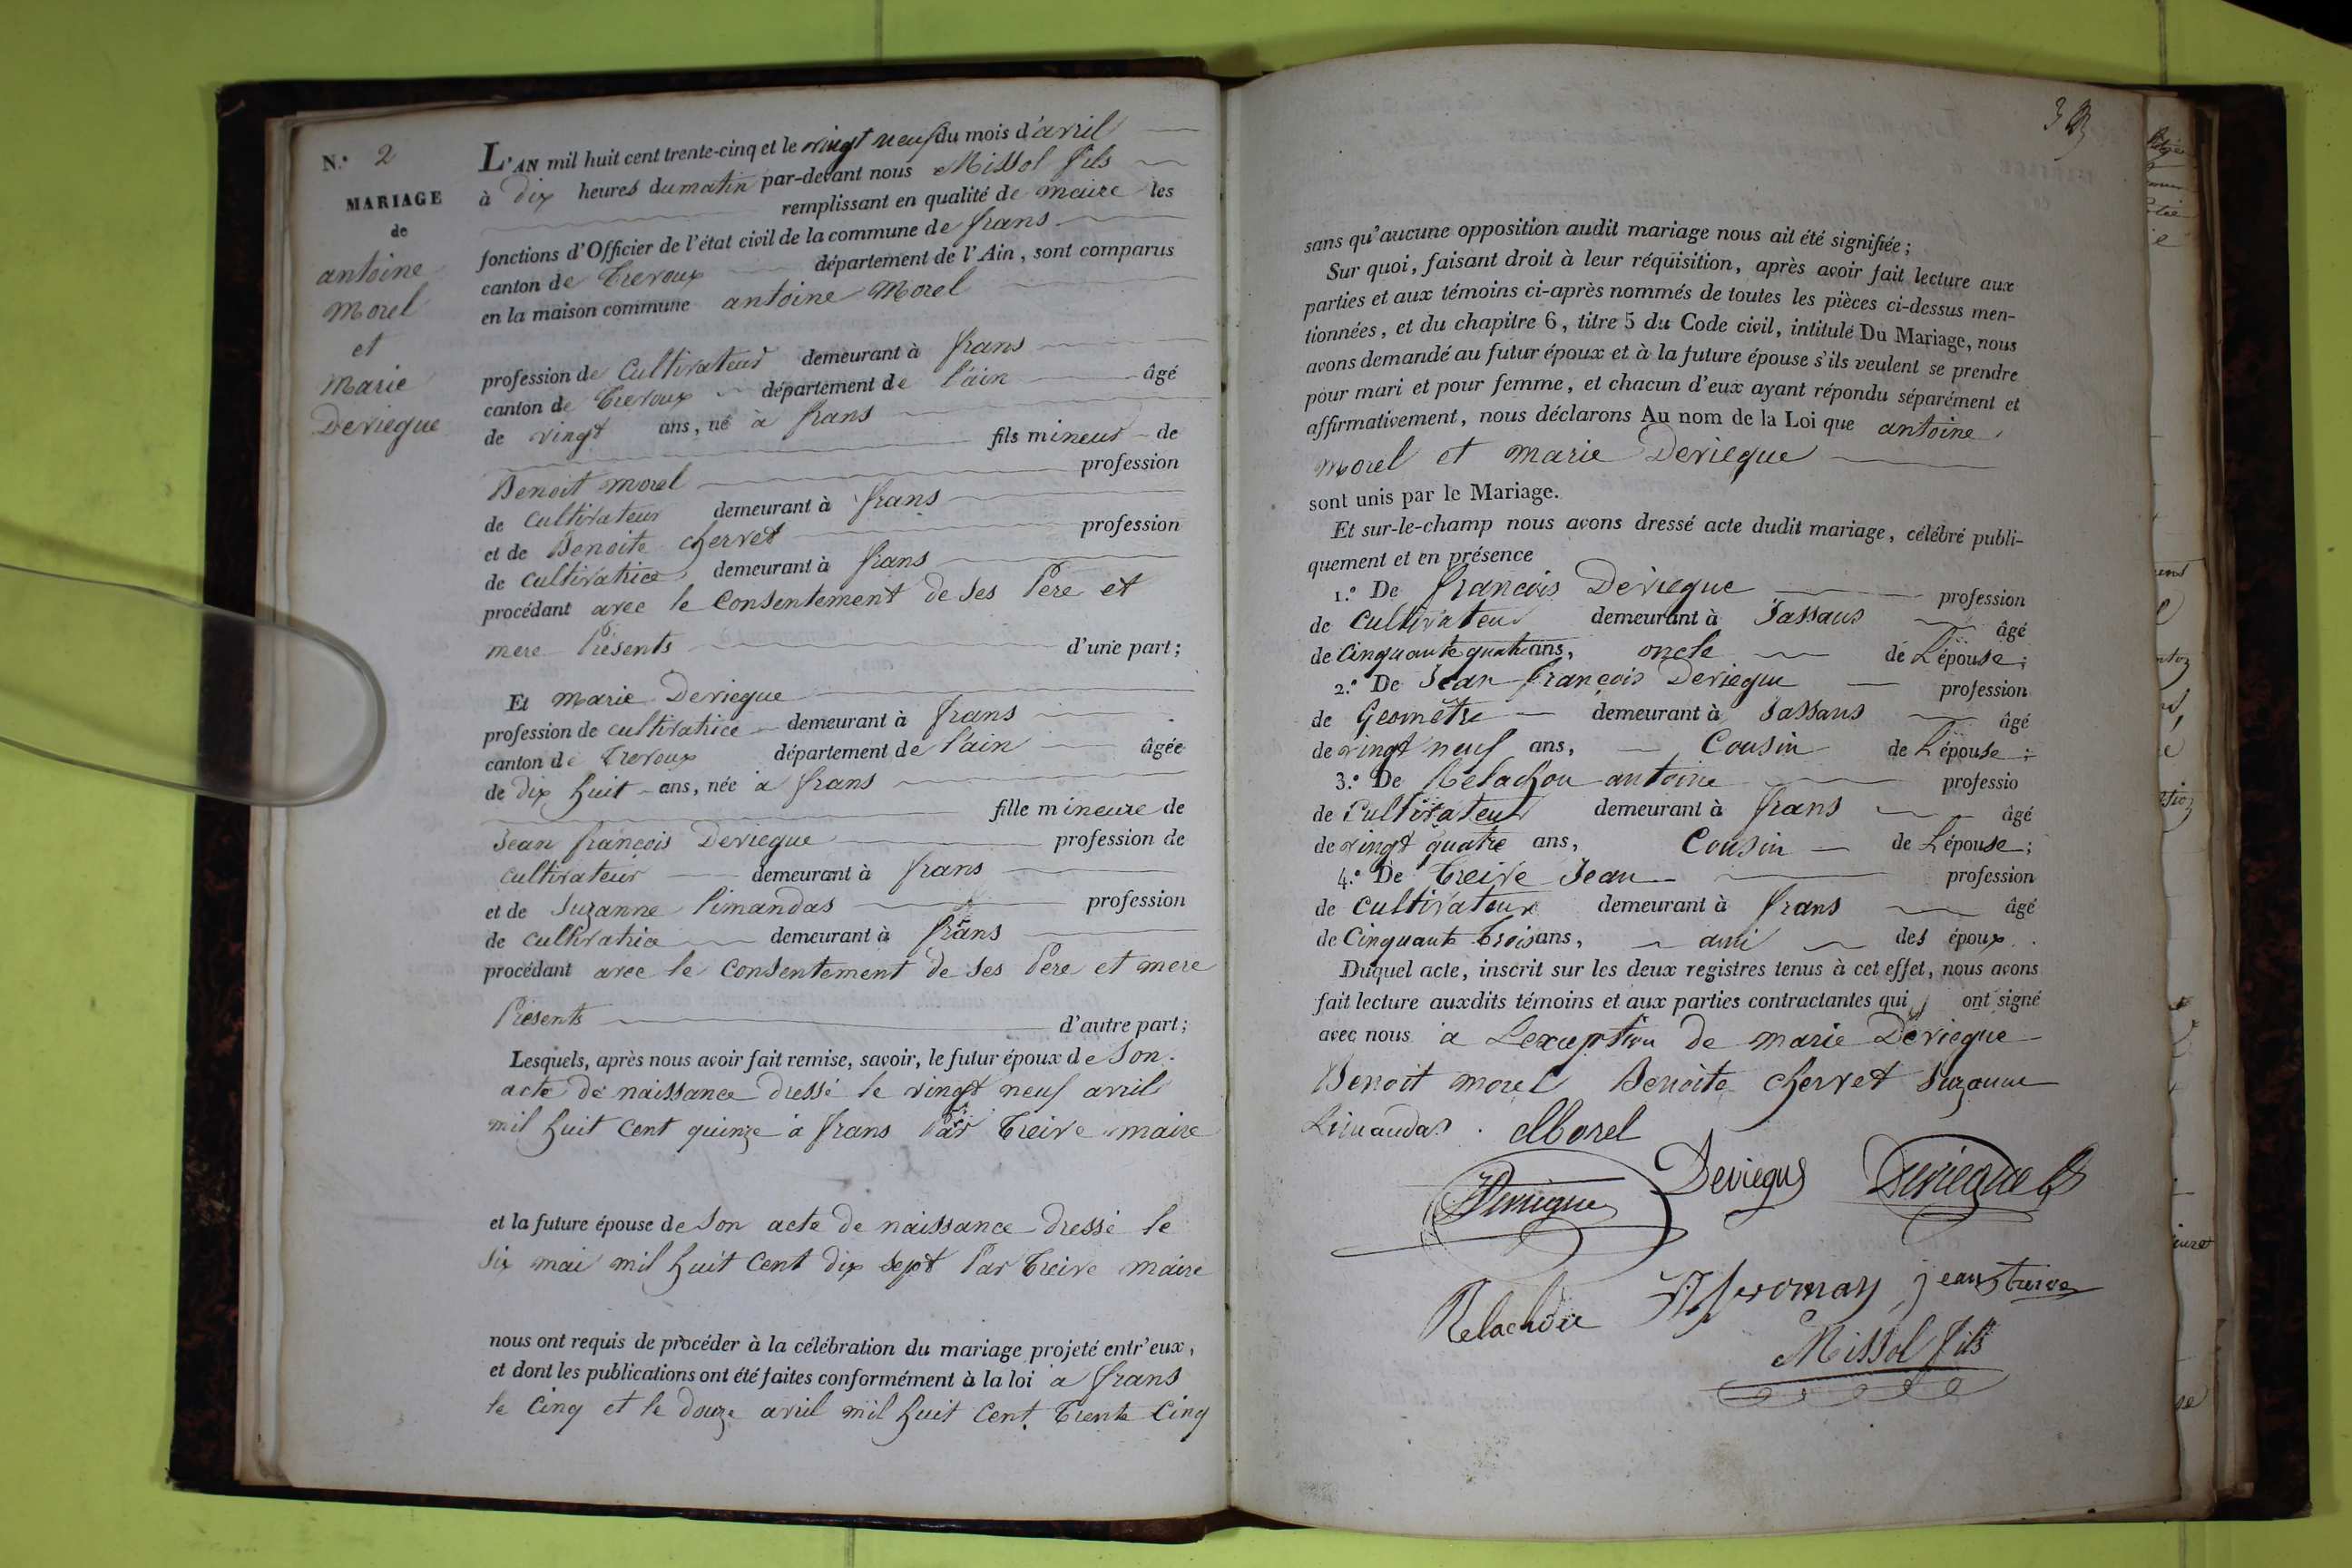 N.° 2
MARIAGE
de
antoine
Morel
et
Marie
Deriegue
L'AN mil huit cent trente-cinq et le vingt neuf du mois d'avril
à Dix heures du matin par-devant nous Missol fils
remplissant en qualité de maire les
fonctions d'Officier de l'état civil de la commune de frans
canton de Trevoux département de l'Ain, sont comparus
en la maison commune antoine Morel
profession de Cultivateur demeurant à frans
canton de Trevoux département de l'ain âgé
de vingt ans, né à frans
fils mineur de
Benoit morel profession
de cultivateur demeurant à frans
et de Benoite chervet profession
de cultivatrice demeurant à frans
procédant avec le Consentement de ses Pere et
mere Présents d'une part;
Et marie Deriegue
profession de cultivatrice demeurant à frans
canton de Trevoux département de l'ain âgée
de dix huit ans, née à frans
fille mineure de
Jean françois Deriegue profession de
cultivateur demeurant à frans
et de Suzanne limandas profession
de cultivatrice demeurant à frans
procédant avec le consentement de ses Pere et mere
Présents d'autre part;
Lesquels, après nous avoir fait remise, savoir, le futur époux de Son
acte de naissance dressé le vingt neuf avril
mil huit cent quinze à frans Par Treive maire
et la future épouse de Son acte de naissance dressé le
six mai mil huit cent dix sept Par Treive maire
nous ont requis de procéder à la célébration du mariage projeté entr'eux,
et dont les publications ont été faites conformément à la loi a frans
le Cinq et le douze avril mil huit cent trente Cinq
3
sans qu'aucune opposition audit mariage nous ait été signifiée;
Sur quoi, faisant droit à leur réquisition, après avoir fait lecture aux
parties et aux témoins ci-après nommés de toutes les pièces ci-dessus men-
tionnées, et du chapitre 6, titre 5 du Code civil, intitulé Du Mariage, nous
avons demandé au futur époux et à la future épouse s'ils veulent se prendre
pour mari et pour femme, et chacun d'eux ayant répondu séparément et
affirmativement, nous déclarons Au nom de la Loi que antoine
Morel et marie Deriegue
sont unis par le Mariage.
Et sur-le-champ nous avons dressé acte dudit mariage, célébré publi-
quement et en présence
1.° De francois Deriegue profession
de Cultivateur demeurant à Jassans âgé
de Cinquante quatre ans, oncle de L'épouse;
2.° De Jean françois Deriegue profession
de Geomètre demeurant à Jassans âgé
de vingt neuf ans, Cousin de L'épouse;
3.° De Relachon antoine professio
de Cultivateur demeurant à frans âgé
de vingt quatre ans, Cousin de L'épouse;
4.° De Treive Jean profession
de Cultivateur demeurant à frans âgé
de Cinquante trois ans, ami des époux.
Duquel acte, inscrit sur les deux registres tenus à cet effet, nous avons
fait lecture auxdits témoins et aux parties contractantes qui ont signé
avec nous à Lexception de marie Deriegue
Benoit morel Benoite chervet Suzanne
Limandas. Morel
Deriegue Deriegue
jean treive
Missol fils